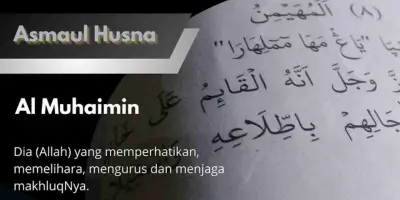 Asmaul Husna
Al Muhaimin
Dia (Allah) yang memperhatikan,
memelihara, mengurus dan menjaga
makhluqNya.
(٨) الْمُهَيْمِنُ
وَجَلَّ أَنَّهُ الْقَائِمُ عَلَى
بِاطِّلَاعِهِ